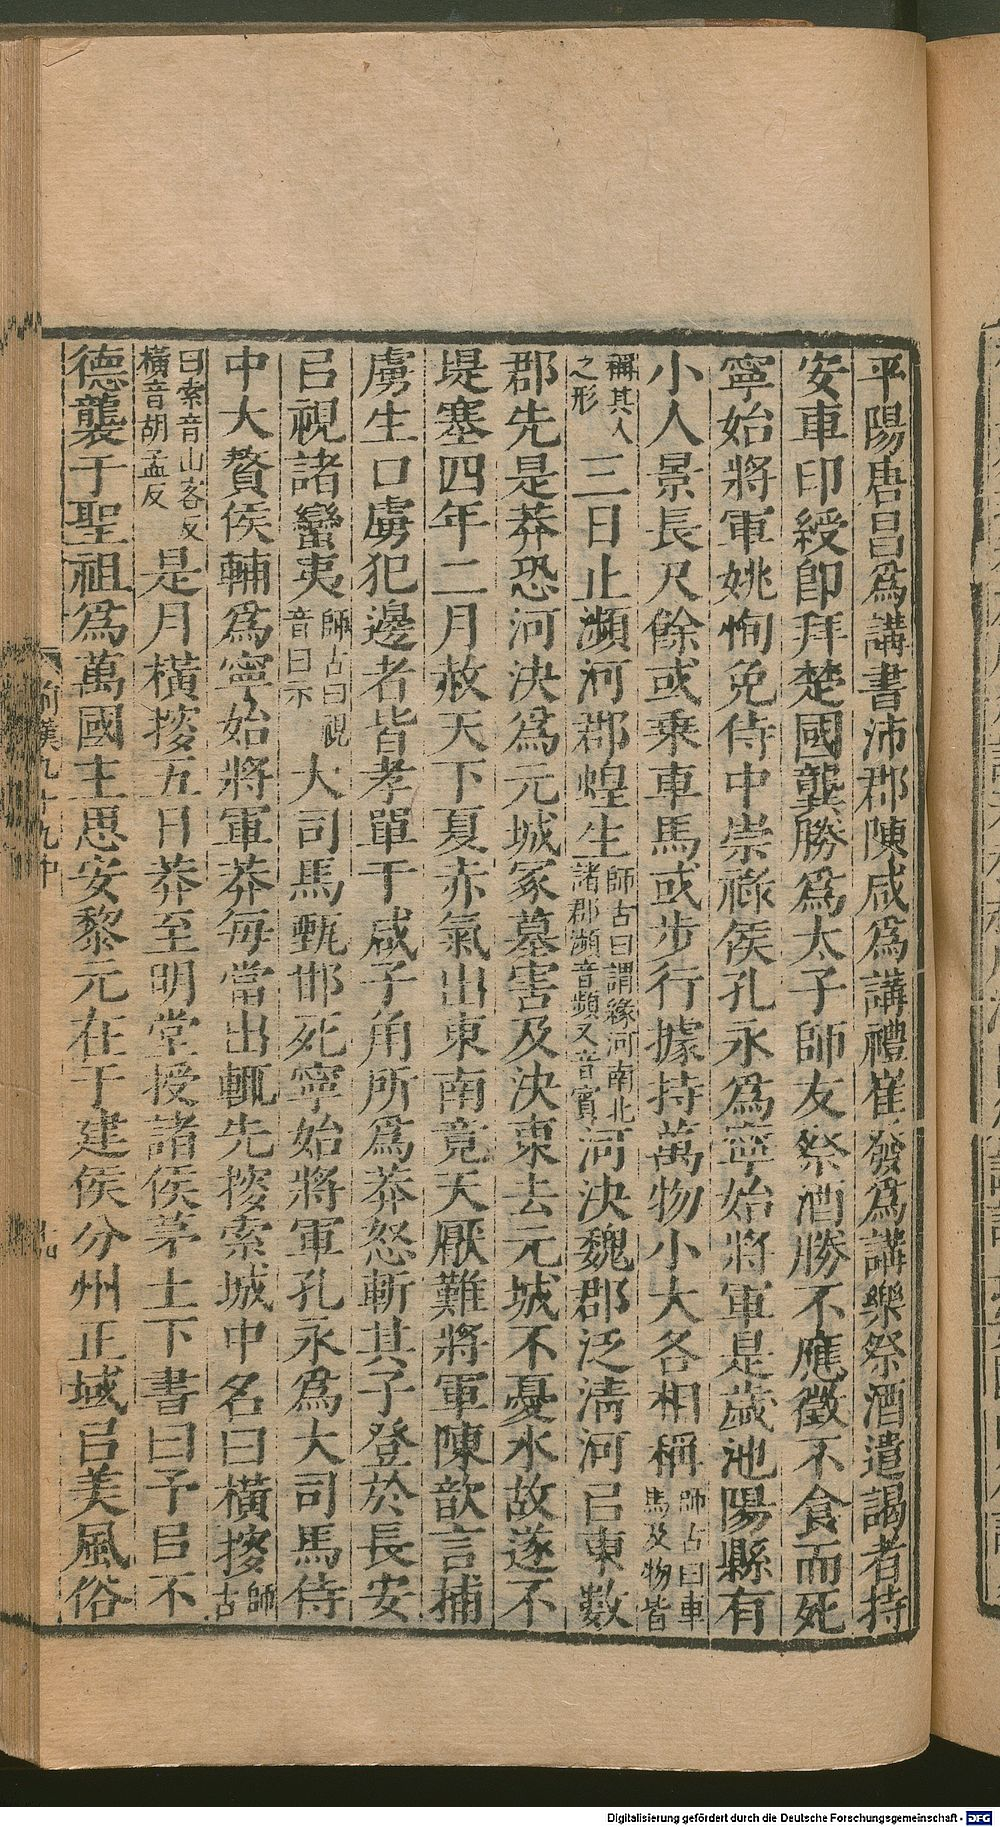 平陽唐昌爲講書沛郡陳咸爲講禮崔發爲講樂祭酒遣謁者持
安車印綬卽拜楚國龔勝爲太子師友祭酒勝不應徵不食而死
寧始將軍姚恂免侍中崇祿侯孔永爲寧始將軍是歲池陽縣有
小人景長尺餘或乘車馬或步行據持萬物小大各相稱師古曰車馬及物皆
稱其人之形三日止瀕河郡蝗生師古曰謂緣河南北諸郡瀕音頻又音賓河決魏郡泛淸河㠯東數
郡先是莽恐河決爲元城冢墓害及決東去元城不憂水故遂不
堤塞四年二月赦天下夏赤氣出東南竟天厭難將軍陳歆言捕
虜生口虜犯邊者皆孝單于咸子角所爲莽怒斬其子登於長安
㠯視諸蠻夷師古曰視音曰示大司馬甄邯死寧始將軍孔永爲大司馬侍
中大贅侯輔爲寧始將軍莽每當出輒先搜索城中名曰橫搜師古
曰索音山客反橫音胡孟反是月橫搜五日莽至明堂授諸侯茅土下書曰予㠯不
德襲于聖祖爲萬國主思安黎元在于建侯分州正域㠯美風俗
前漢九十九中
Digitalisierung gefördert durch die Deutsche Forschungsgemeinschaft - DFG